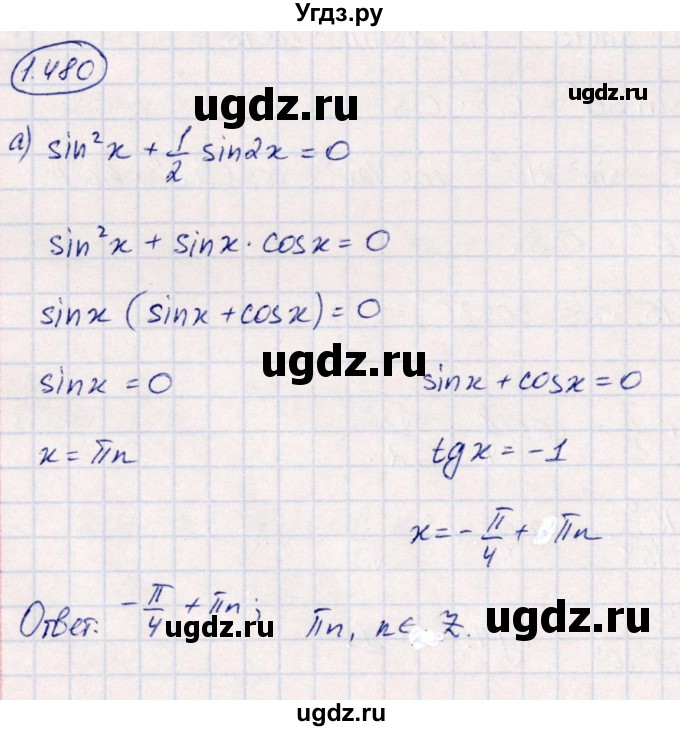 Угдз.ру
1.480
ugdz.ru
а) sin²x + 1/2 sin2x = 0
sin²x + sinx · cosx = 0
sinx (sinx + cosx) = 0
ugdz.ru
sinx = 0 sinx + cosx = 0
x = πn tgx = -1
x = -π/4 + πn
Ответ: -π/4 + πn; πn, n∈ Z.
ugdz.ru ugdz.ru
ugdz.ru